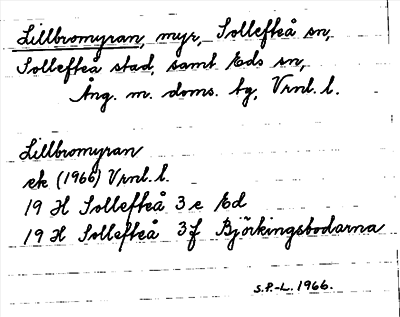 Lillbromyran, myr, Sollefteå sn,
Sollefteå stad, samt Eds sn,
Ång. m. doms. tg, Vrnl. l.
Lillbromyran
ek (1966) Vrnl. l.
19 H Sollefteå 3 e Ed
19 H Sollefteå 3f Björkingsbodarna
S.P.-L. 1966.